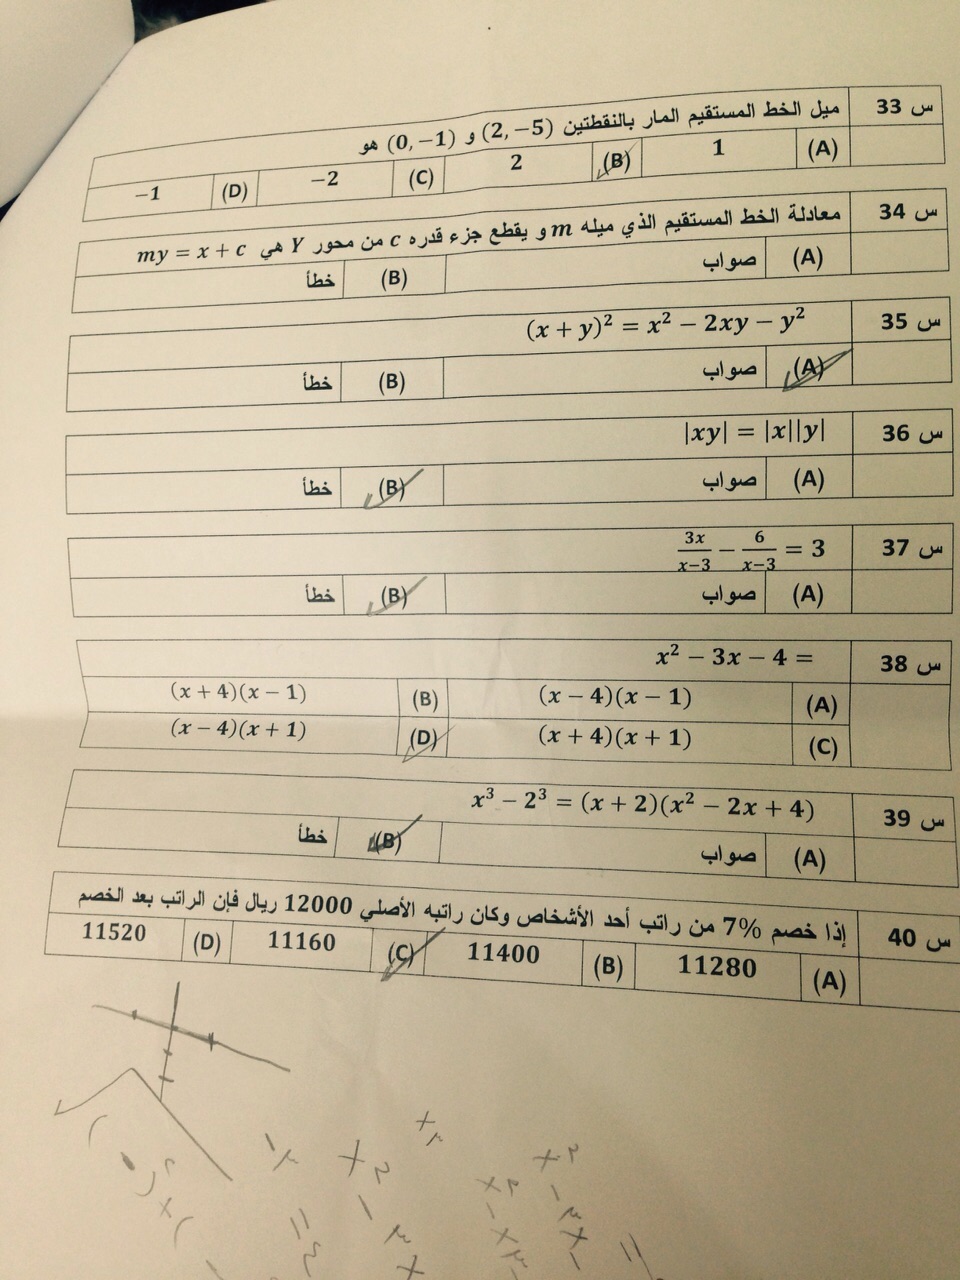 س 33 ميل الخط المستقيم المار بالنقطتين (2, −5) و (0, −1) هو
(A) 1 (B) 2 (C) −2 (D) −1
س 34 معادلة الخط المستقيم الذي ميله m و يقطع جزء قدره c من محور Y هي my = x + c
(A) صواب (B) خطأ
س 35 (x + y)² = x² − 2xy − y²
(A) صواب (B) خطأ
س 36 |xy| = |x||y|
(A) صواب (B) خطأ
س 37 3x/x−3 − 6/x−3 = 3
(A) صواب (B) خطأ
س 38 x² − 3x − 4 =
(A) (x − 4)(x − 1) (B) (x + 4)(x − 1)
(C) (x + 4)(x + 1) (D) (x − 4)(x + 1)
س 39 x³ − 2³ = (x + 2)(x² − 2x + 4)
(A) صواب (B) خطأ
س 40 إذا خصم 7% من راتب أحد الأشخاص وكان راتبه الأصلي 12000 ريال فإن الراتب بعد الخصم
(A) 11280 (B) 11400 (C) 11160 (D) 11520